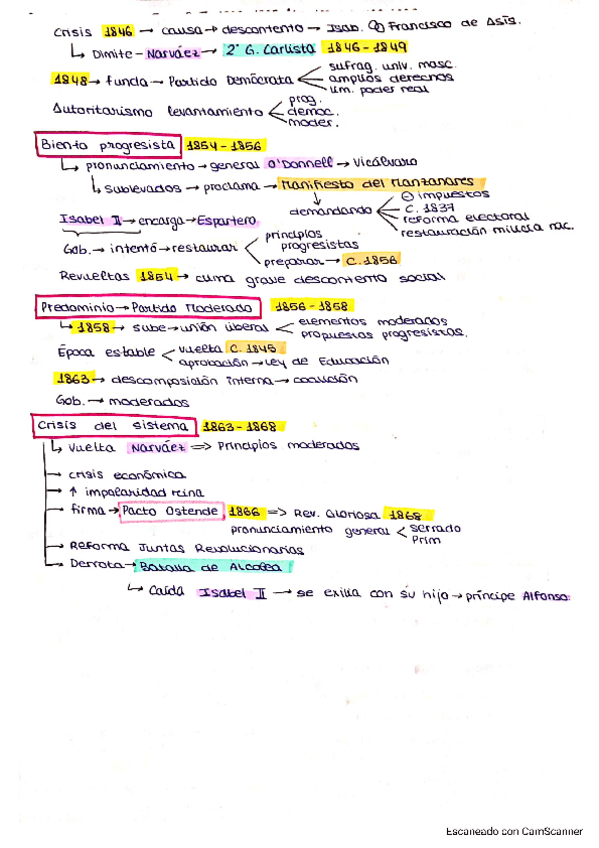 Crisis 1846 → causa → descontento → Isab. Ⓧ Francisco de Asís.
↳ Dimite - Narváez → 2ª G. Carlista 1846 - 1849
1848 → funda → Partido Demócrata < sufrag. univ. masc.
amplios derechos
lim. poder real
Autoritarismo levantamiento < prog.
democ.
moder.
Bienio progresista 1854 - 1856
↳ pronunciamiento → general O'Donnell → Vicálvaro
↳ sublevados → proclama → Manifiesto del Manzanares
demandando < ⊖ impuestos
C. 1837
reforma electoral
restauración milicia nac.
Isabel II → encarga → Espartero
Gob. → intentó → restaurar < principios progresistas
preparar → C. 1856
Revueltas 1854 → clima grave descontento social
Predominio → Partido Moderado 1856 - 1858
↳ 1858 → sube → unión liberal < elementos moderados
propuestas progresistas.
Época estable < vuelta C. 1845
aprobación → Ley de Educación
1863 → descomposición interna → coalición
Gob. → moderados
Crisis del sistema 1863 - 1868
↳ Vuelta Narváez => Principios moderados
→ crisis económica
→ ↑ impolaridad reina
→ firma → Pacto Ostende 1866 => Rev. Gloriosa 1868
pronunciamiento general < Serrado
Prim
→ Reforma Juntas Revolucionarias
→ Derrota → Batalla de Alcolea
↳ Caída Isabel II → se exilia con su hijo → príncipe Alfonso.
Escaneado con CamScanner